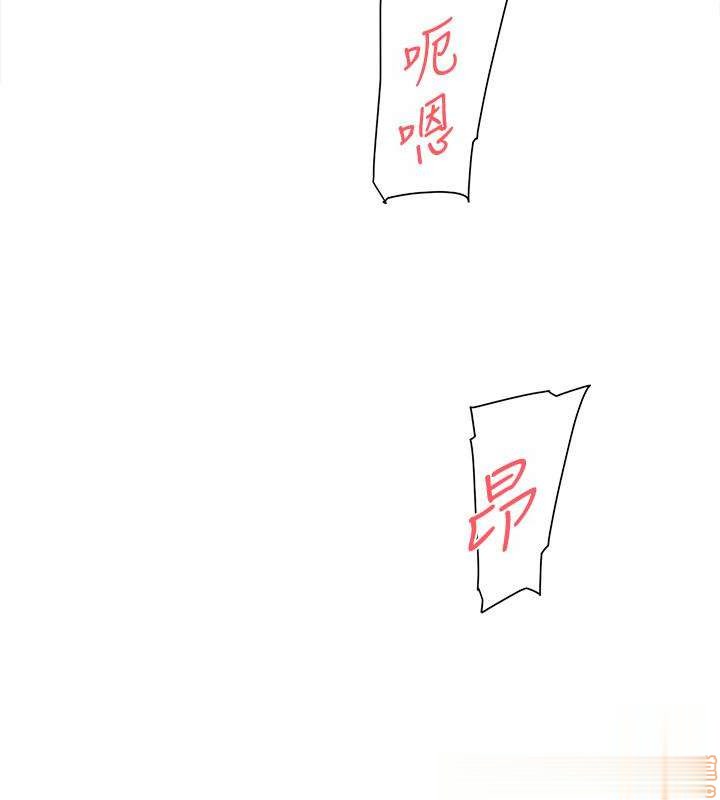 呃嗯
昂